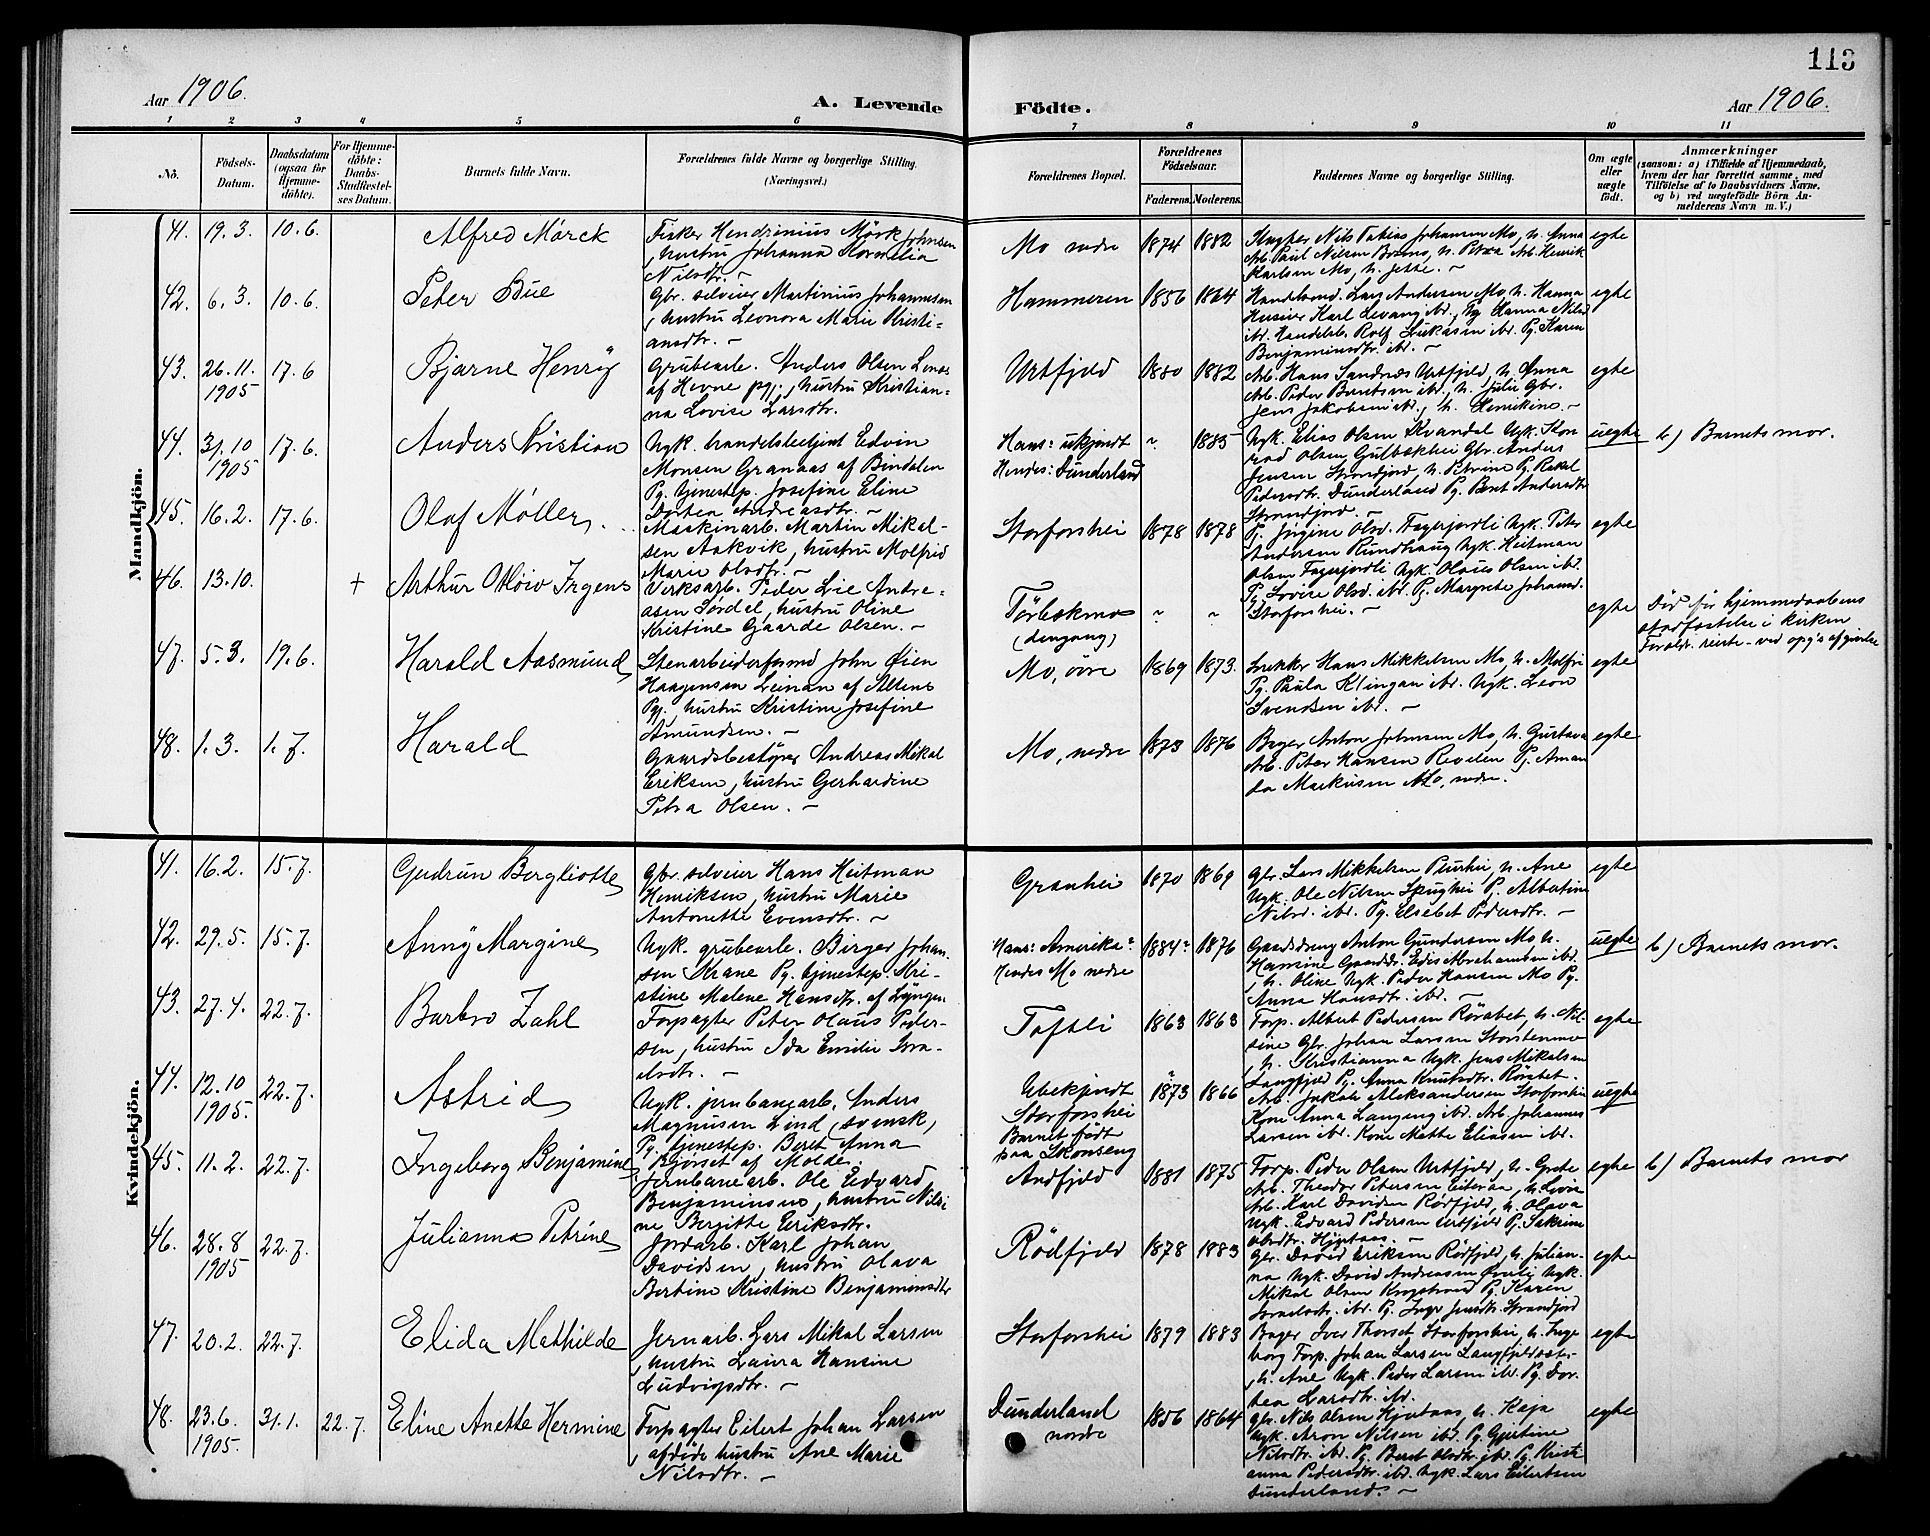 113
Aar 1906.
A. Levende
Födte.
Aar 1906.
1 2 3 4 5 6
7 8 9 10 11
No.
Födsels-Datum.
Daabsdatum (ogsaa for Hjemme-döbte).
For Hjemme-döbte: Daabs-Stadfæstel-ses Datum.
Barnets fulde Navn.
Forældrenes fulde Navne og borgerlige Stilling.
(Næringsvei.)
Forældrenes Bopæl.
Forældrenes Födselsaar.
Faderens. Moderens.
Faddernes Navne og borgerlige Stilling.
Om ægte eller uægte födt.
Anmærkninger
(saasom: a) i Tilfælde af Hjemmedaab,
hvem der har forrettet samme, med
Tilföielse af to Daabsvidners Navne,
og b) ved uægtefödte Börn An-
melderens Navn m. V.)
Mandkjön.
41. 19.3. 10.6. Alfred Mörck
Fisker Hendrinius Mörk Johnsen
, hustru Johanna Kornelia
Nilsdtr. ~
Mo nedre 1874 1882
Nils Tobias Johansen Mo, h. Anna
Arb. Paul Nilsen h. Petra Arb. Henrik
Karlsen Mo, h. Jette. ~
egte
42. 6.3. 10.6. Peter Bue
Gbr. selveier Martinius Johannesen
, hustru Leonora Marie Kristi=
ansdtr. ~
Hammeren 1856 1864
Lars Andersen Mo h. Hanna
Huseier Karl Levang ibd., Pg. Hanna Nilsd
ibd. Handelsb. Rolf Lukasen ibd. Pg. Karen
Benjaminsdtr. ibd. ~
egte
43. 26.11. 1905 17.6 Bjarne Henry
Grubearb. Anders Olsen
af Hevne pgj., hustru Kristian=
na Lovise Larsdtr.
Urtfjeld 1880 1882
Arb. Hans Sandnæs Urtfjeld, h. Anna
Arb. Peder Berntsen ibd., h. Julie Gbr.
Jens Jakobsen ibd., h. Henrikine. ~
egte
44. 31.10 1905 17.6. Anders Kristian
Ugk. handelsbetjent Edvin
Monsen Granaas af Bindalen
Pg. tjenestep. Josefine Eline
Dortea Andreasdtr. ~
Hans: ukjendt
Hendes: Dunderland
~ 1885
Ugk. Elias Olsen Kvandal Ugk. Kon
rad Olsen Gulbækhei Gbr. Anders
Jensen Strandjord, h. Petrine Pg. Rakel
Pedersdtr. Dunderland Pg. Berit Andersdtr
Strandjord. ~
uegte b) Barnets mor.
45. 16.2. 17.6. Olaf Møller
Maskinarb. Martin Mikal-
sen Aakvik, hustru Molfrid
Marie Olsdtr. ~
Storforshei 1878 1878
Pg. Jörgine Olsd. Fagerjordli Ugk. Peter
Andersen Rundhaug Ugk. Heitman
Olsen Fagerjordli Ugk. Olaus Olsen ibd.
Pg. Lovise Olsd. ibd. Pg. Margrete Johansd.
Storforshei. ~
egte
46. 13.10. + Arthur Irgens
Verksarb. Peder Lie Andre=
asen Sördel, hustru Oline
Kristine Gaarde Olsen. ~
(dengang) ~ ~
egte
Död för hjemmedaabens
stadfæstelse i kirken
47. 5.3. 19.6. Harald Aasmund
Stenarbeiderformd John Öien
Haagensen Leinan af
Pgj. hustru Kristine Josefine
Amundsen. ~
Mo, övre 1869 1873.
Hans Mikkelsen Mo, h. Molfri
Pg. Paula Klingan ibd. Ugk. Leon
Svendsen ibd. ~
egte
48. 1.3. 1.7. Harald
Gaardsbestyrer Andreas Mikal
Eriksen, hustru Gerhardine
Petra Olsen. ~
Mo, nedre 1873 1876
Bager Anton Johnsen Mo, h. Gustava
Arb. Peter Hansen Revelen Pg. Aman
da Markusen Mo, nedre.
egte
Kvindekjön.
41. 16.2. 15.7. Gudrun Bergliotte
Gbr. selveier Hans Heitman
Henriksen, hustru Marie
Antonette Evensdtr. ~
Granhei 1870 1869
Gbr. Lars Mikkelsen h. Ane
Ugk. Ole Nilsen Pg. Albertine
Nilsd. ibd. Pg. Elsebet Pedersdtr. ~
egte
42. 29.5. 15.7. Anny Margine
Ugk. grubearb. Birger Johan
sen Krane Pg. tjenestep. Kri-
stine Malene Hansdtr. af Lyngen
Hans: Amerika:
Hendes Mo nedre
1884? 1876
Gaardsdreng Anton Gundersen Mo, h.
Hansine Abrahamsen ibd.
, h. Oline Ugk. Peder Hansen Mo Pg.
Anna Hansdtr. ibd. ~
uegte b) Barnets mor.
43. 27.4. 22.7. Barbro Zahl
Forpagter Peter Olaus Peder-
sen, hustru Ida Emilie Isra-
elsdtr. ~
Toftli 1863 1863
Forp. Albert Pedersen Rösabet, h. Nil-
sine Gbr. Johan Larsen Storstenmo
h. Kristianna Ugk. Jens Mikalsen
Langfjeld Pg. Anna Knutsdtr. Rösabet.
egte
44. 12.10 1905. 22.7. Astrid
Ugk. jernbanearb. Anders
Magnusen Lind, svensk,
Pg. tjenestep. Beret Anna
Björset af Molde.
Ubekjendt
Storforshei
Barnet födt
paa Skonseng
1873 1866
Arb. Jakob Aleksandersen Storforshei
Kone Anna Langeng ibd. Arb. Johannes
Larsen ibd. Kone Mette Eliasen ibd.
uegte
45. 11.2. 22.7. Ingeborg Benjamine
Jernbanearb. Ole Edvard
Benjaminsen, hustru Nilsi
ne Bergitte Eriksdtr.
Andfjeld 1881 1875
Forp. Peder Olsen Urtfjeld, h. Grete
Arb. Theodor Petersen Eiteraa, h. Lovise
Arb. Karl Davidsen Rödfjeld, h. Olava
Ugk. Edvard Pedersen Urtfjeld Pg. Sakrine
Olsdtr. Hjartaas. ~
egte b) Barnets mor
46. 28.8 1905 22.7. Julianna Petrine
Jordarb. Karl Johan
Davidsen, hustru Olava
Bertine Kristine Benjaminsdtr
Rödfjeld 1878 1883
Gbr. David Eriksen Rödfjeld, h. Julian-
na Ugk. David Andreasen Ugk.
Mikal Olsen Krogstrand Pg. Karen
Israelsdtr. ibd. Pg. Inger Jensdtr. Strandjord
egte
47. 20.2. 22.7. Elida Mathilde
Jernarb. Lars Mikal Larsen
, hustru Laura Hansine
Ludvigsdtr. ~
Storforshei 1879 1883
Bager Iver Thorset Storforshei, h. Inge
borg Forp. Johan Larsen
, h. Ane Ugk. Peder Larsen ibd. Pg. Dor-
tea Larsdtr. ibd.
egte
48. 23.6. 1905. 31.1. 22.7. Eline Anette Hermine
Forpagter Eilert Johan Larsen
, afdöde hustru Ane Marie
Nilsdtr. ~
Dunderland
nordre
1856 1864
Gbr. Nils Olsen Hjartaas, h. Kaja
Ugk. Aron Nilsen ibd. Pg. Gjertine
Nilsdtr. ibd. Pg. Beret Olsdtr. ibd. Pg. Kristi
anna Pedersdtr. ibd. Ugk. Lars Eilertsen
Dunderland. ~
egte